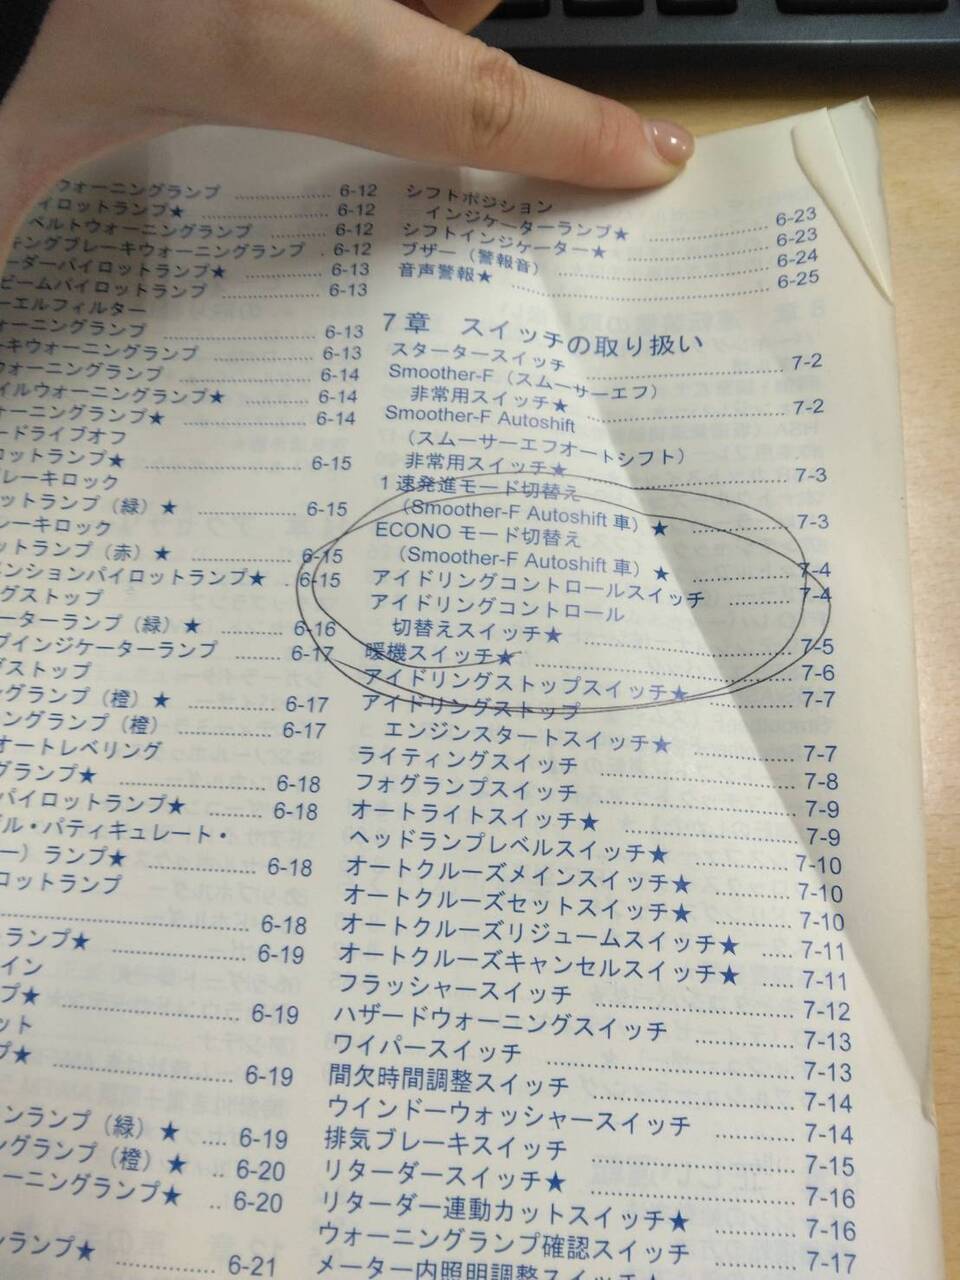 ウォーニングランプ ............ 6-12
イロットランプ★ ............ 6-12
ベルトウォーニングランプ ............ 6-12
ブレーキウォーニングランプ . 6-12
ーダーパイロットランプ★ ............ 6-13
ビームパイロットランプ ............ 6-13
ーエルフィルター
ォーニングランプ ............ 6-13
ーキウォーニングランプ ............ 6-13
ウォーニングランプ ............ 6-14
イルウォーニングランプ★ ............ 6-14
ォーニングランプ★ ............ 6-14
ードライブオフ
ロットランプ★ ............ 6-15
ブレーキロック
ットランプ（緑）★ ............ 6-15
レーキロック
ットランプ（赤）★ ............ 6-15
ンションパイロットランプ★ ... 6-15
グストップ
ーターランプ（緑）★ ............ 6-16
プインジケーターランプ ............ 6-17
グストップ
ーグランプ（橙）★ ............ 6-17
ングランプ（橙） ............ 6-17
オートレベリング
グランプ★ ............ 6-18
パイロットランプ★ ......... 6-18
ル・パティキュレート・
ー）ランプ★ ............ 6-18
ロットランプ
............ 6-18
ランプ★ ............ 6-19
イン
プ★ ............ 6-19
ット
プ★ ............ 6-19
ンランプ（緑）★ .... 6-19
ングランプ（橙）★ .. 6-20
ーニングランプ★ .. 6-20
ンランプ★ ............ 6-21
シフトポジション
インジケーターランプ★ ............ 6-23
シフトインジケーター★ ............ 6-23
ブザー（警報音） ............ 6-24
音声警報★ ............ 6-25
7章 スイッチの取り扱い
スタータースイッチ ............ 7-2
Smoother-F（スムーサーエフ）
非常用スイッチ★ ............ 7-2
Smoother-F Autoshift
（スムーサーエフオートシフト）
非常用スイッチ★ ............ 7-3
1速発進モード切替え
（Smoother-F Autoshift 車）★ ............ 7-3
ECONO モード切替え
（Smoother-F Autoshift 車）★ ............ 7-4
アイドリングコントロールスイッチ ......... 7-4
アイドリングコントロール
切替えスイッチ★ ............ 7-5
暖機スイッチ★ ............ 7-6
アイドリングストップスイッチ★ ............ 7-7
アイドリングストップ
エンジンスタートスイッチ★ ............ 7-7
ライティングスイッチ ............ 7-8
フォグランプスイッチ ............ 7-9
オートライトスイッチ★ ............ 7-9
ヘッドランプレベルスイッチ★ ............ 7-10
オートクルーズメインスイッチ★ ............ 7-10
オートクルーズセットスイッチ★ ............ 7-10
オートクルーズリジュームスイッチ★ ..... 7-11
オートクルーズキャンセルスイッチ★ ..... 7-11
フラッシャースイッチ ............ 7-12
ハザードウォーニングスイッチ ............ 7-13
ワイパースイッチ ............ 7-13
間欠時間調整スイッチ ............ 7-14
ウインドーウォッシャースイッチ ............ 7-14
排気ブレーキスイッチ ............ 7-15
リタータースイッチ★ ............ 7-16
リターダー連動カットスイッチ★ ............ 7-16
ウォーニングランプ確認スイッチ ............ 7-17
メーター内照明調整スイッチ★